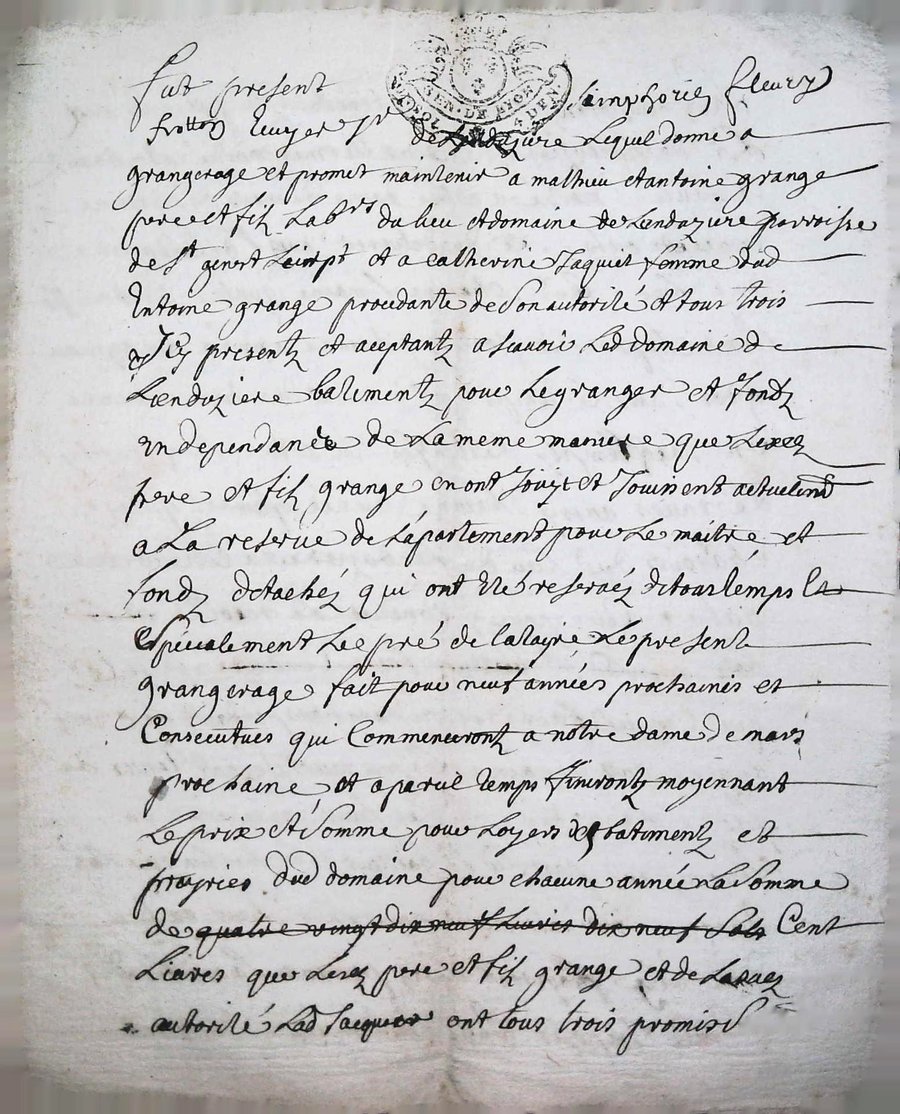 GEN. DE LYON
4 DEN
Fut present Simphorien fleury
frotton Ecuyer sr de Lenduziere Lequel donne a
grangerage et promet maintenir a mathieu et antoine grange
pere et filz Labrs du lieu et domaine de Lenduziere parroisse
de St genest et a Catherine Jaquet femme dud
Entoine grange procedante de Son autorité et tous trois
Icy presentz et aceptantz a scavoir Led domaine de
Lenduziere batimentz pour Le granger et fondz
en dependance de La meme maniere que Lesd
pere et filz grange en ont Jouyt et Jouissent actuelmt
a La reserve de L'apartement pour Le maitre et
fondz detachéz qui ont eté reservéz de tous temps Et
Espécialement Le pré de la Le present
grangerage fait pour neuf années prochaines et
Consecutives qui Commenceront a notre dame de mars
prochaine et a pareil temps finiront moyennant
Le prix et Somme pour Loyers des batimentz et
prayries dud domaine pour chacune année La Somme
de quatre vingt dix neuf Livres dix neuf Sols Cent
Livres que Lesd pere et filz grange et de
autorité Lad Jacquet ont tous trois promis